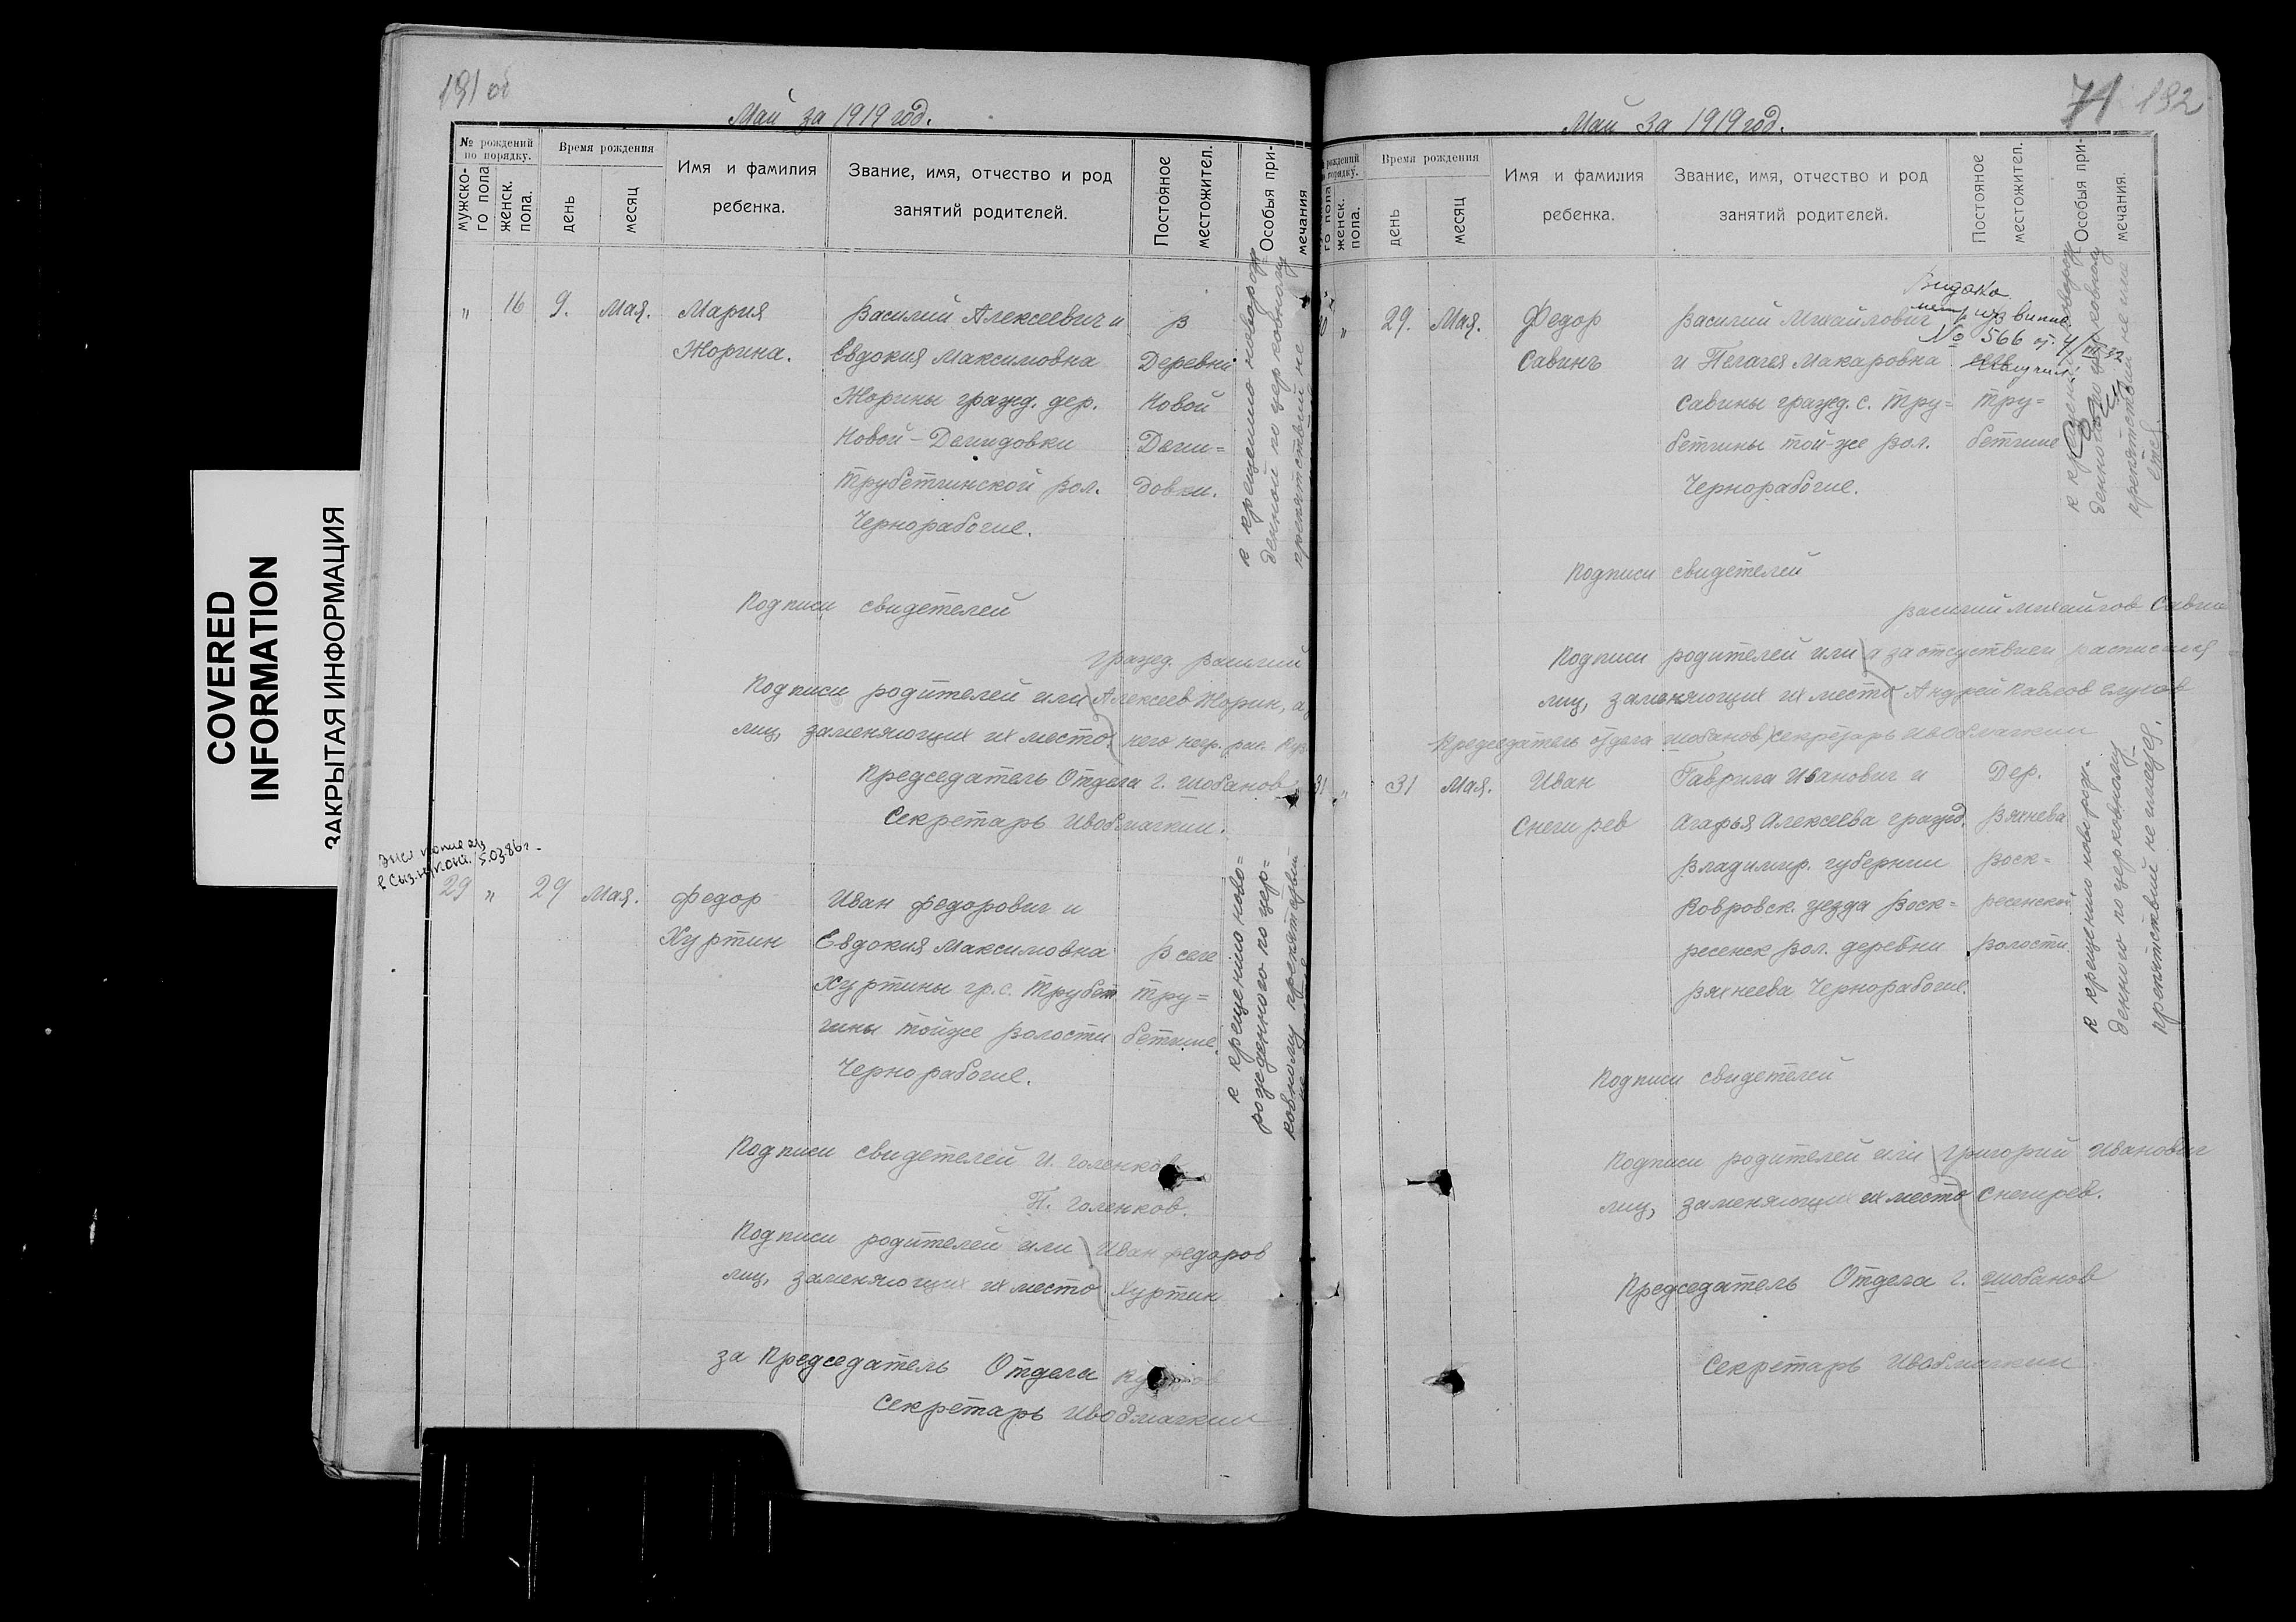 COVERED
INFORMATION
ЗАКРЫТАЯ ИНФОРМАЦИЯ
191 об
Май за 1919 год.
№ рождений
по порядку.
мужско-
го пола
женск.
пола.
Время рождения
день
месяц
Имя и фамилия
ребенка.
Звание, имя, отчество и род
занятий родителей.
Постояное
местожител.
Особыя при-
мечания
" 16 9. Мая. Мария Василий Алексеевич и В
Жорина. Евдокия Максимовна Деревни
Жорины гражд. дер. Новой
Новой-Демидовки Деми=
Трубетчинской вол. довки.
Чернорабочие.
к крещению новорож
денной по церковному
препятствий не
Подписи свидетелей
гражд. Василий
Подписи родителей или Алексеев Жорин, а
лиц, заменяющих их место
Председатель Отдела Г. Шобанов
Секретарь
5.03.86г.
29 " 29 Мая. Федор Иван Федорович и
Хуртин Евдокия Максимовна В селе
Хуртины гр. с. Трубет Тру=
чины тойже волости бетчине.
Чернорабочие.
к крещению ново=
рожденного по цер=
ковному препятствий
Подписи свидетелей И. Голенков
П. Голенков.
Подписи родителей или Иван Федоров
лиц, заменяющих их место Хуртин
за Председатель Отдела
Секретарь
71 192
Май за 1919 год.
рождений
порядку.
го пола
женск.
пола.
Время рождения
день
месяц
Имя и фамилия
ребенка.
Звание, имя, отчество и род
занятий родителей.
Постояное
местожител.
Особыя при-
мечания.
" 29. Мая. Федор Василий Михайлович
Савинъ и Пелагея Макаровна
Савины гражд. с. Тру= Тру=
бетчины той-же вол. бетчине
Чернорабочие.
№ 566
к крещению новорож
денного по церковному
препятствий не име
ется.
Подписи свидетелей
Василий Михайлов Савин
Подписи родителей или а за отсуствием расписался
лиц, заменяющих их место Андрей Павлов
Председатель отдела Шобанов Секретарь
31 " 31 Мая. Иван Гаврила Иванович и Дер.
Снегирев Агафья Алексеева гражд. Вяхнева
Владимир. губернии Воск=
Ковровск. уезда Воск= ресенской
ресенск вол. деревни волости.
Вяхнеева Чернорабочие.
к крещению новорож-
денного по церковному
препятствий не имеется.
Подписи свидетелей
Подписи родителей или Григорий Иванович
лиц, заменяющих их место Снегирев.
Председатель Отдела Г. Шобанов
Секретарь